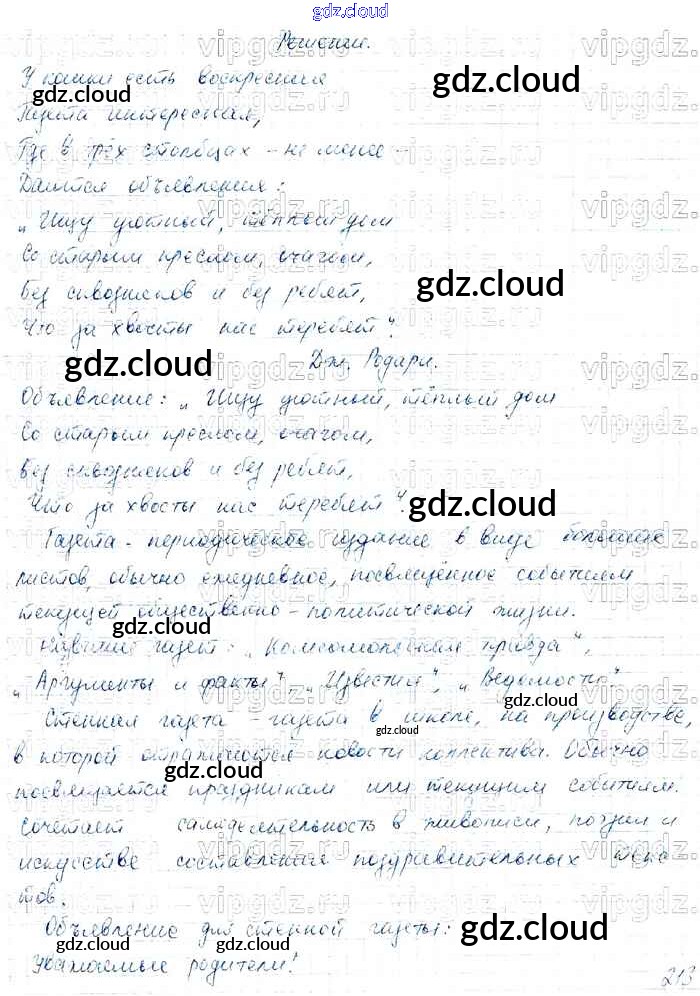 gdz.cloud
Решение.
У кошки есть воскресная
Газета интересная,
Где в трёх столбцах - не менее -
Даются объявления:
„Ищу уютный, тёплый дом
Со старым креслом, очагом,
Без сквозняков и без ребят,
Что за хвосты нас теребят“.
Дж. Родари.
Объявление: „Ищу уютный, тёплый дом
Со старым креслом, очагом,
Без сквозняков и без ребят,
Что за хвосты нас теребят“.
Газета - периодическое издание в виде больших
листов, обычно ежедневное, посвящённое событиям
текущей общественно-политической жизни.
Названия газет: „Комсомольская правда“,
„Аргументы и факты“, „Известия“, „Ведомости“
Стенная газета - газета в школе, на производстве,
в которой отражаются новости коллектива. Обычно
посвящается праздникам или текущим событиям.
Сочетает самодеятельность в живописи, поэзии и
искусстве составления поздравительных текс
тов.
Объявление для стенной газеты:
Уважаемые родители!
213